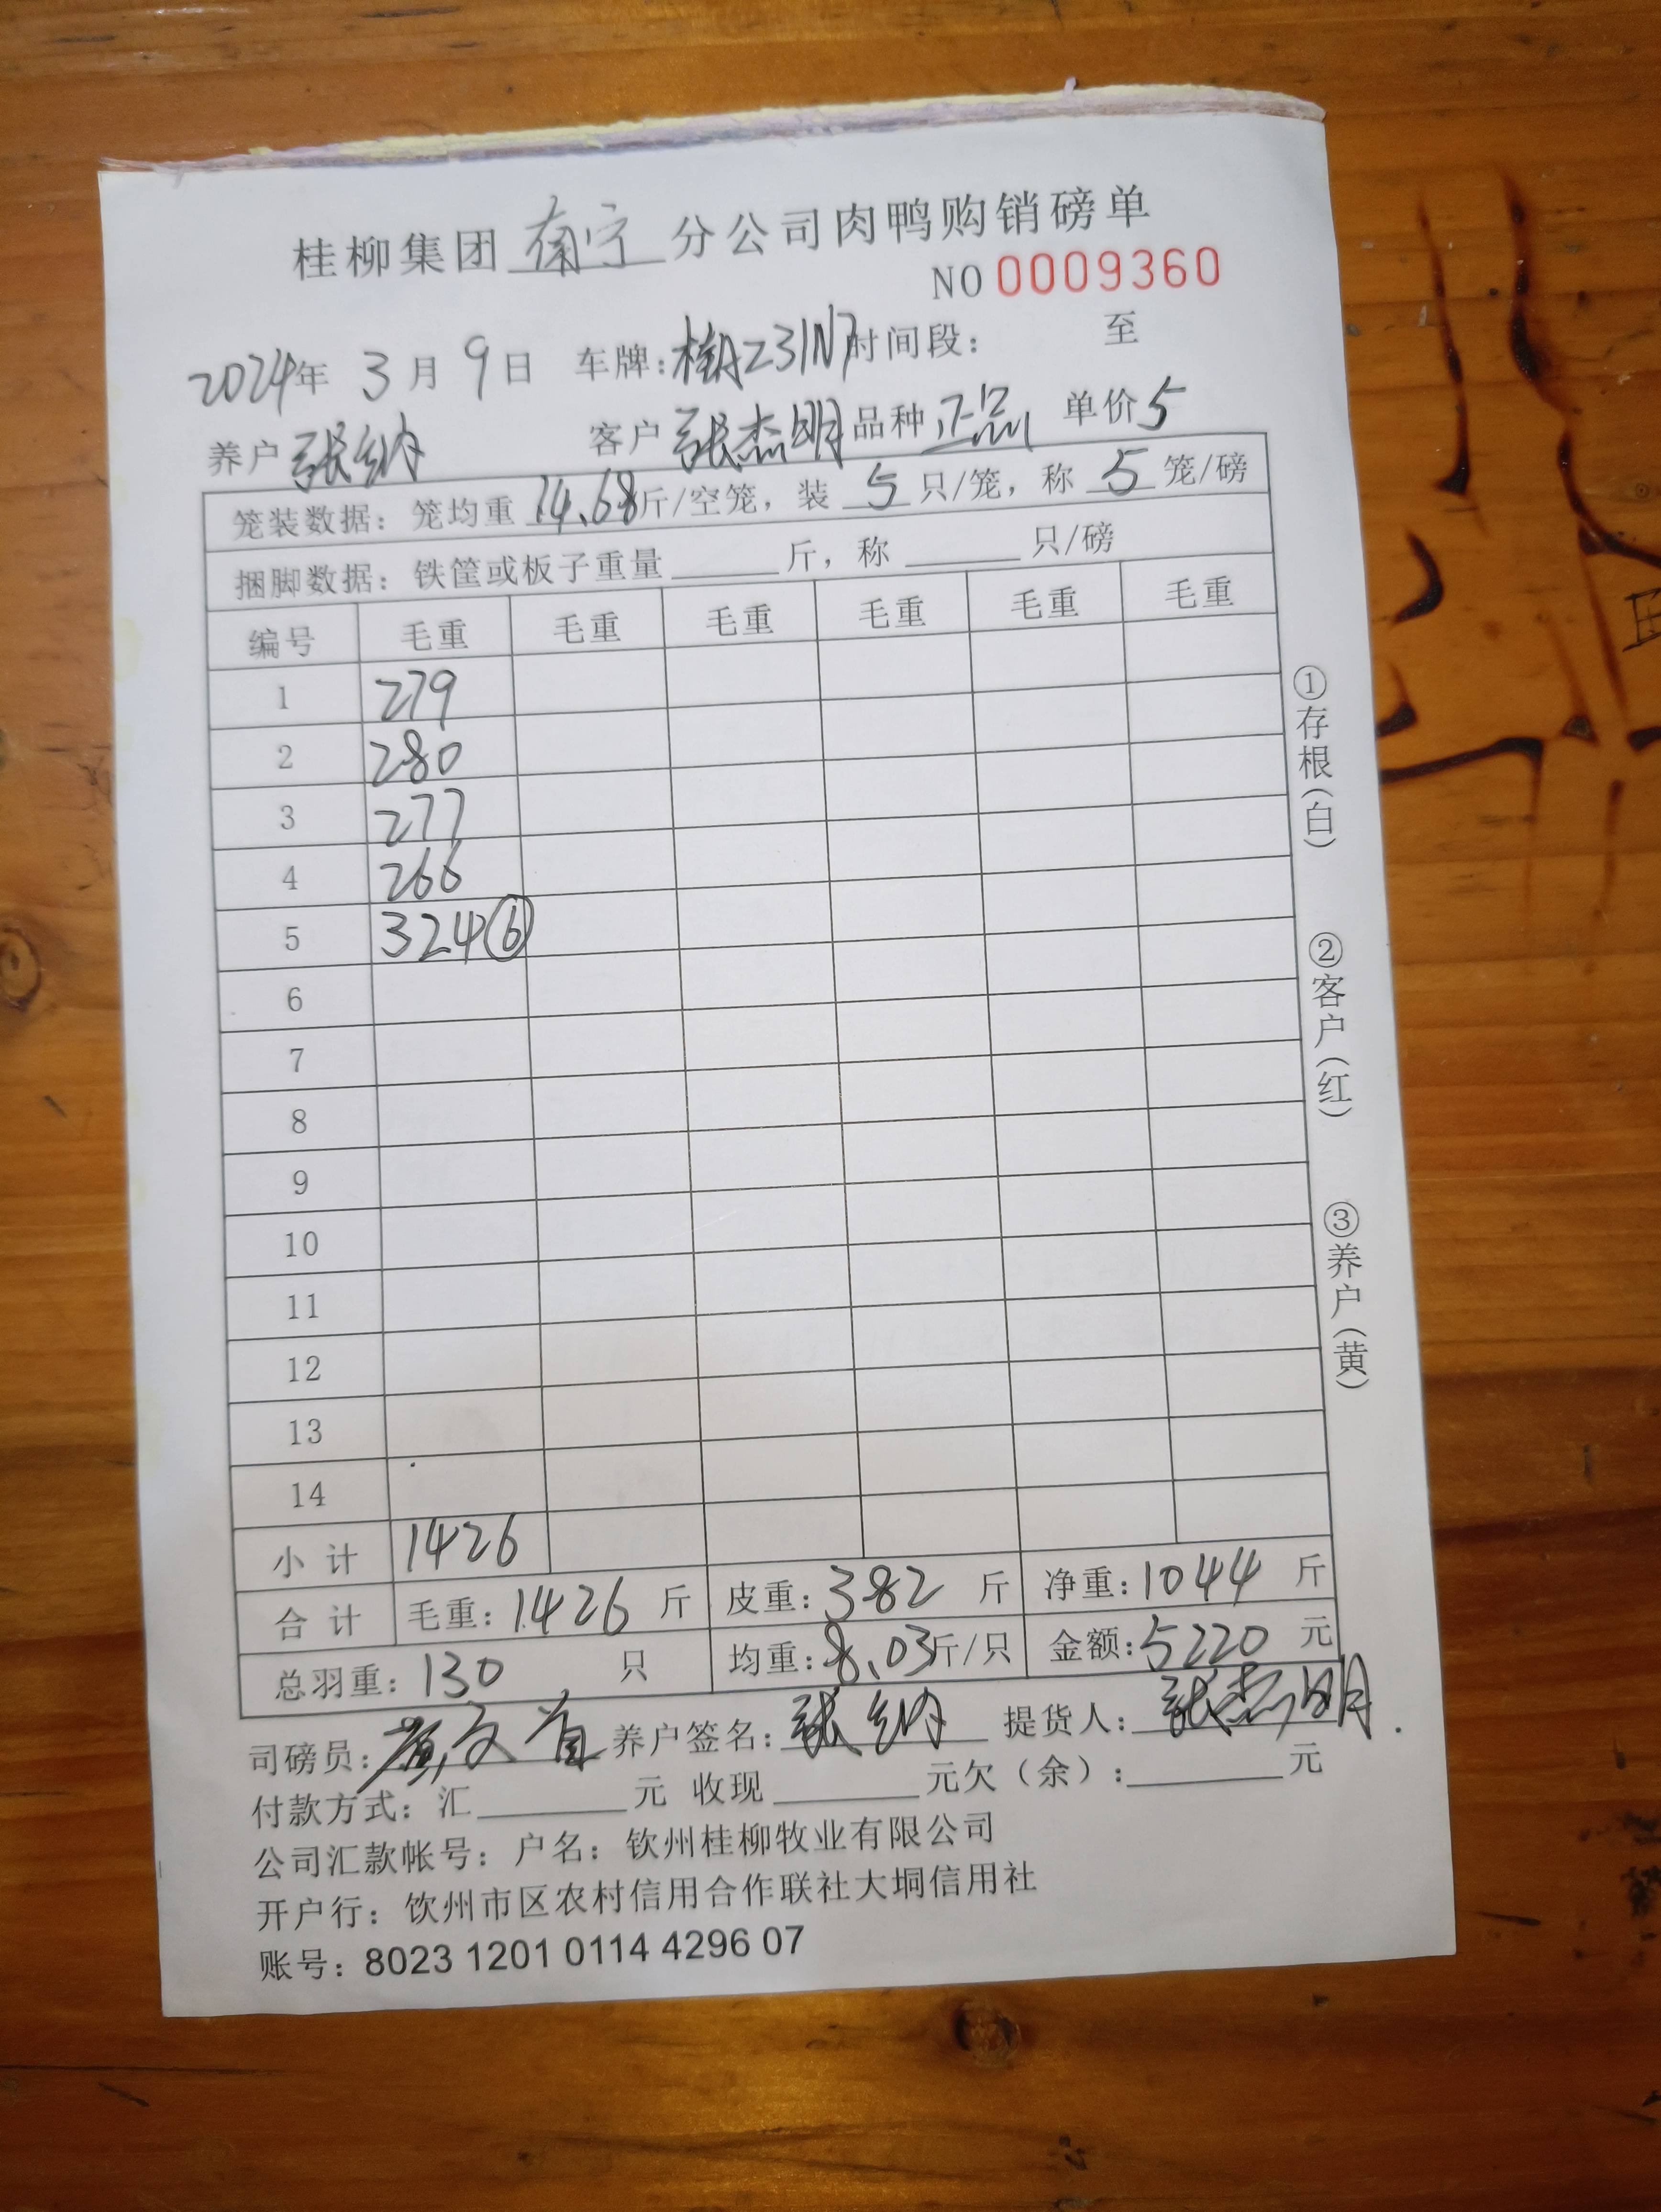 桂柳集团 南宁 分公司肉鸭购销磅单
NO 0009360
2024年 3月 9日 车牌：桂AZ31N7 时间段： 至
养户 张纳 客户 张杰明 品种 正品 单价 5
笼装数据：笼均重 14.68 斤/空笼，装 5 只/笼，称 5 笼/磅
捆脚数据：铁筐或板子重量 斤，称 只/磅
编号 毛重 毛重 毛重 毛重 毛重 毛重
1 279
2 280
3 277
4 266
5 324⑥
6
7
8
9
10
11
12
13
14
小计 1426
合计 毛重：1426 斤 皮重：382 斤 净重：1044 斤
总羽重：130 只 均重：8.03斤/只 金额：5220 元
司磅员：黄文 养户签名：张纳 提货人：张杰明
付款方式：汇 元 收现 元欠（余）： 元
公司汇款帐号：户名：钦州桂柳牧业有限公司
开户行：饮州市区农村信用合作联社大垌信用社
账号：8023 1201 0114 4296 07
①存根（白）
②客户（红）
③养户（黄）